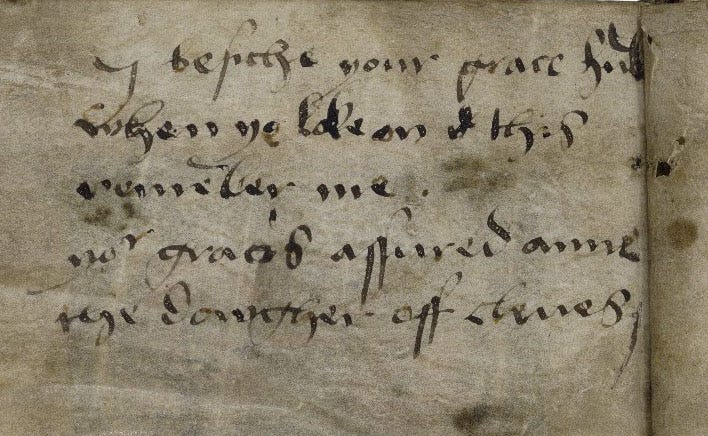 I besiche your grace hũbly
when ye loke on this
remẽber me .
yor graces assured anne
the dowther off cleves